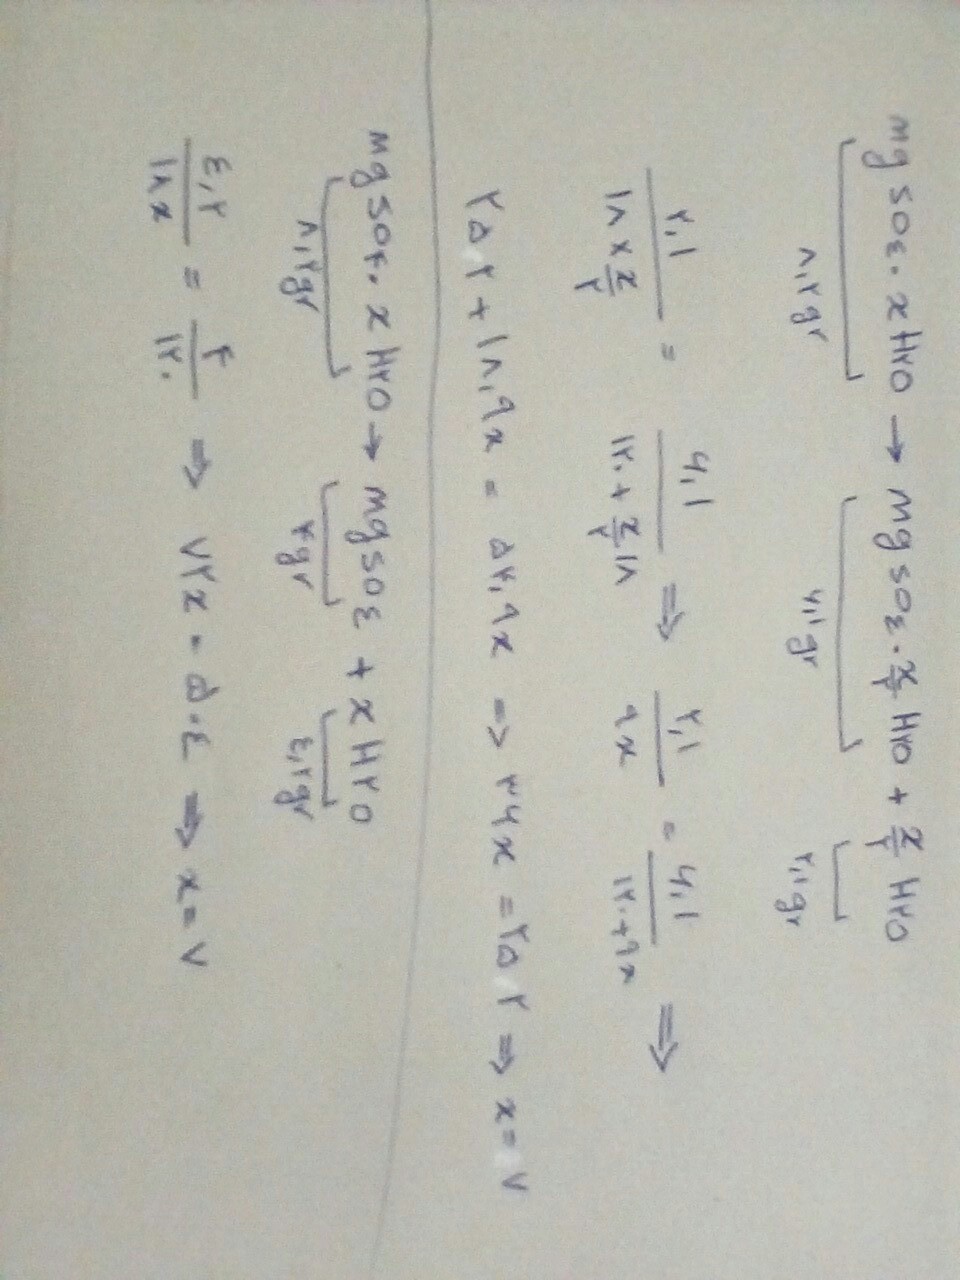 mg so۴ . x H۲O → mg so۴ . x/۲ H۲O + x/۲ H۲O
۸,۲gr ۶,۱gr ۲,۱gr
۲,۱/(۱۸ × x/۲) = ۶,۱/(۱۲۰ + x/۲ ۱۸) ⇒ ۲,۱/۹x = ۶,۱/(۱۲۰+۹x) ⇒
۲۵۲ + ۱۸,۹x = ۵۴,۹x => ۳۶x = ۲۵۲ ⇒ x = ۷
mg so۴ . x H۲O → mg so۴ + x H۲O
۸,۲gr ۴gr ۴,۲gr
۴,۲/۱۸x = ۴/۱۲۰ ⇒ ۷۲x = ۵۰۴ ⇒ x = ۷